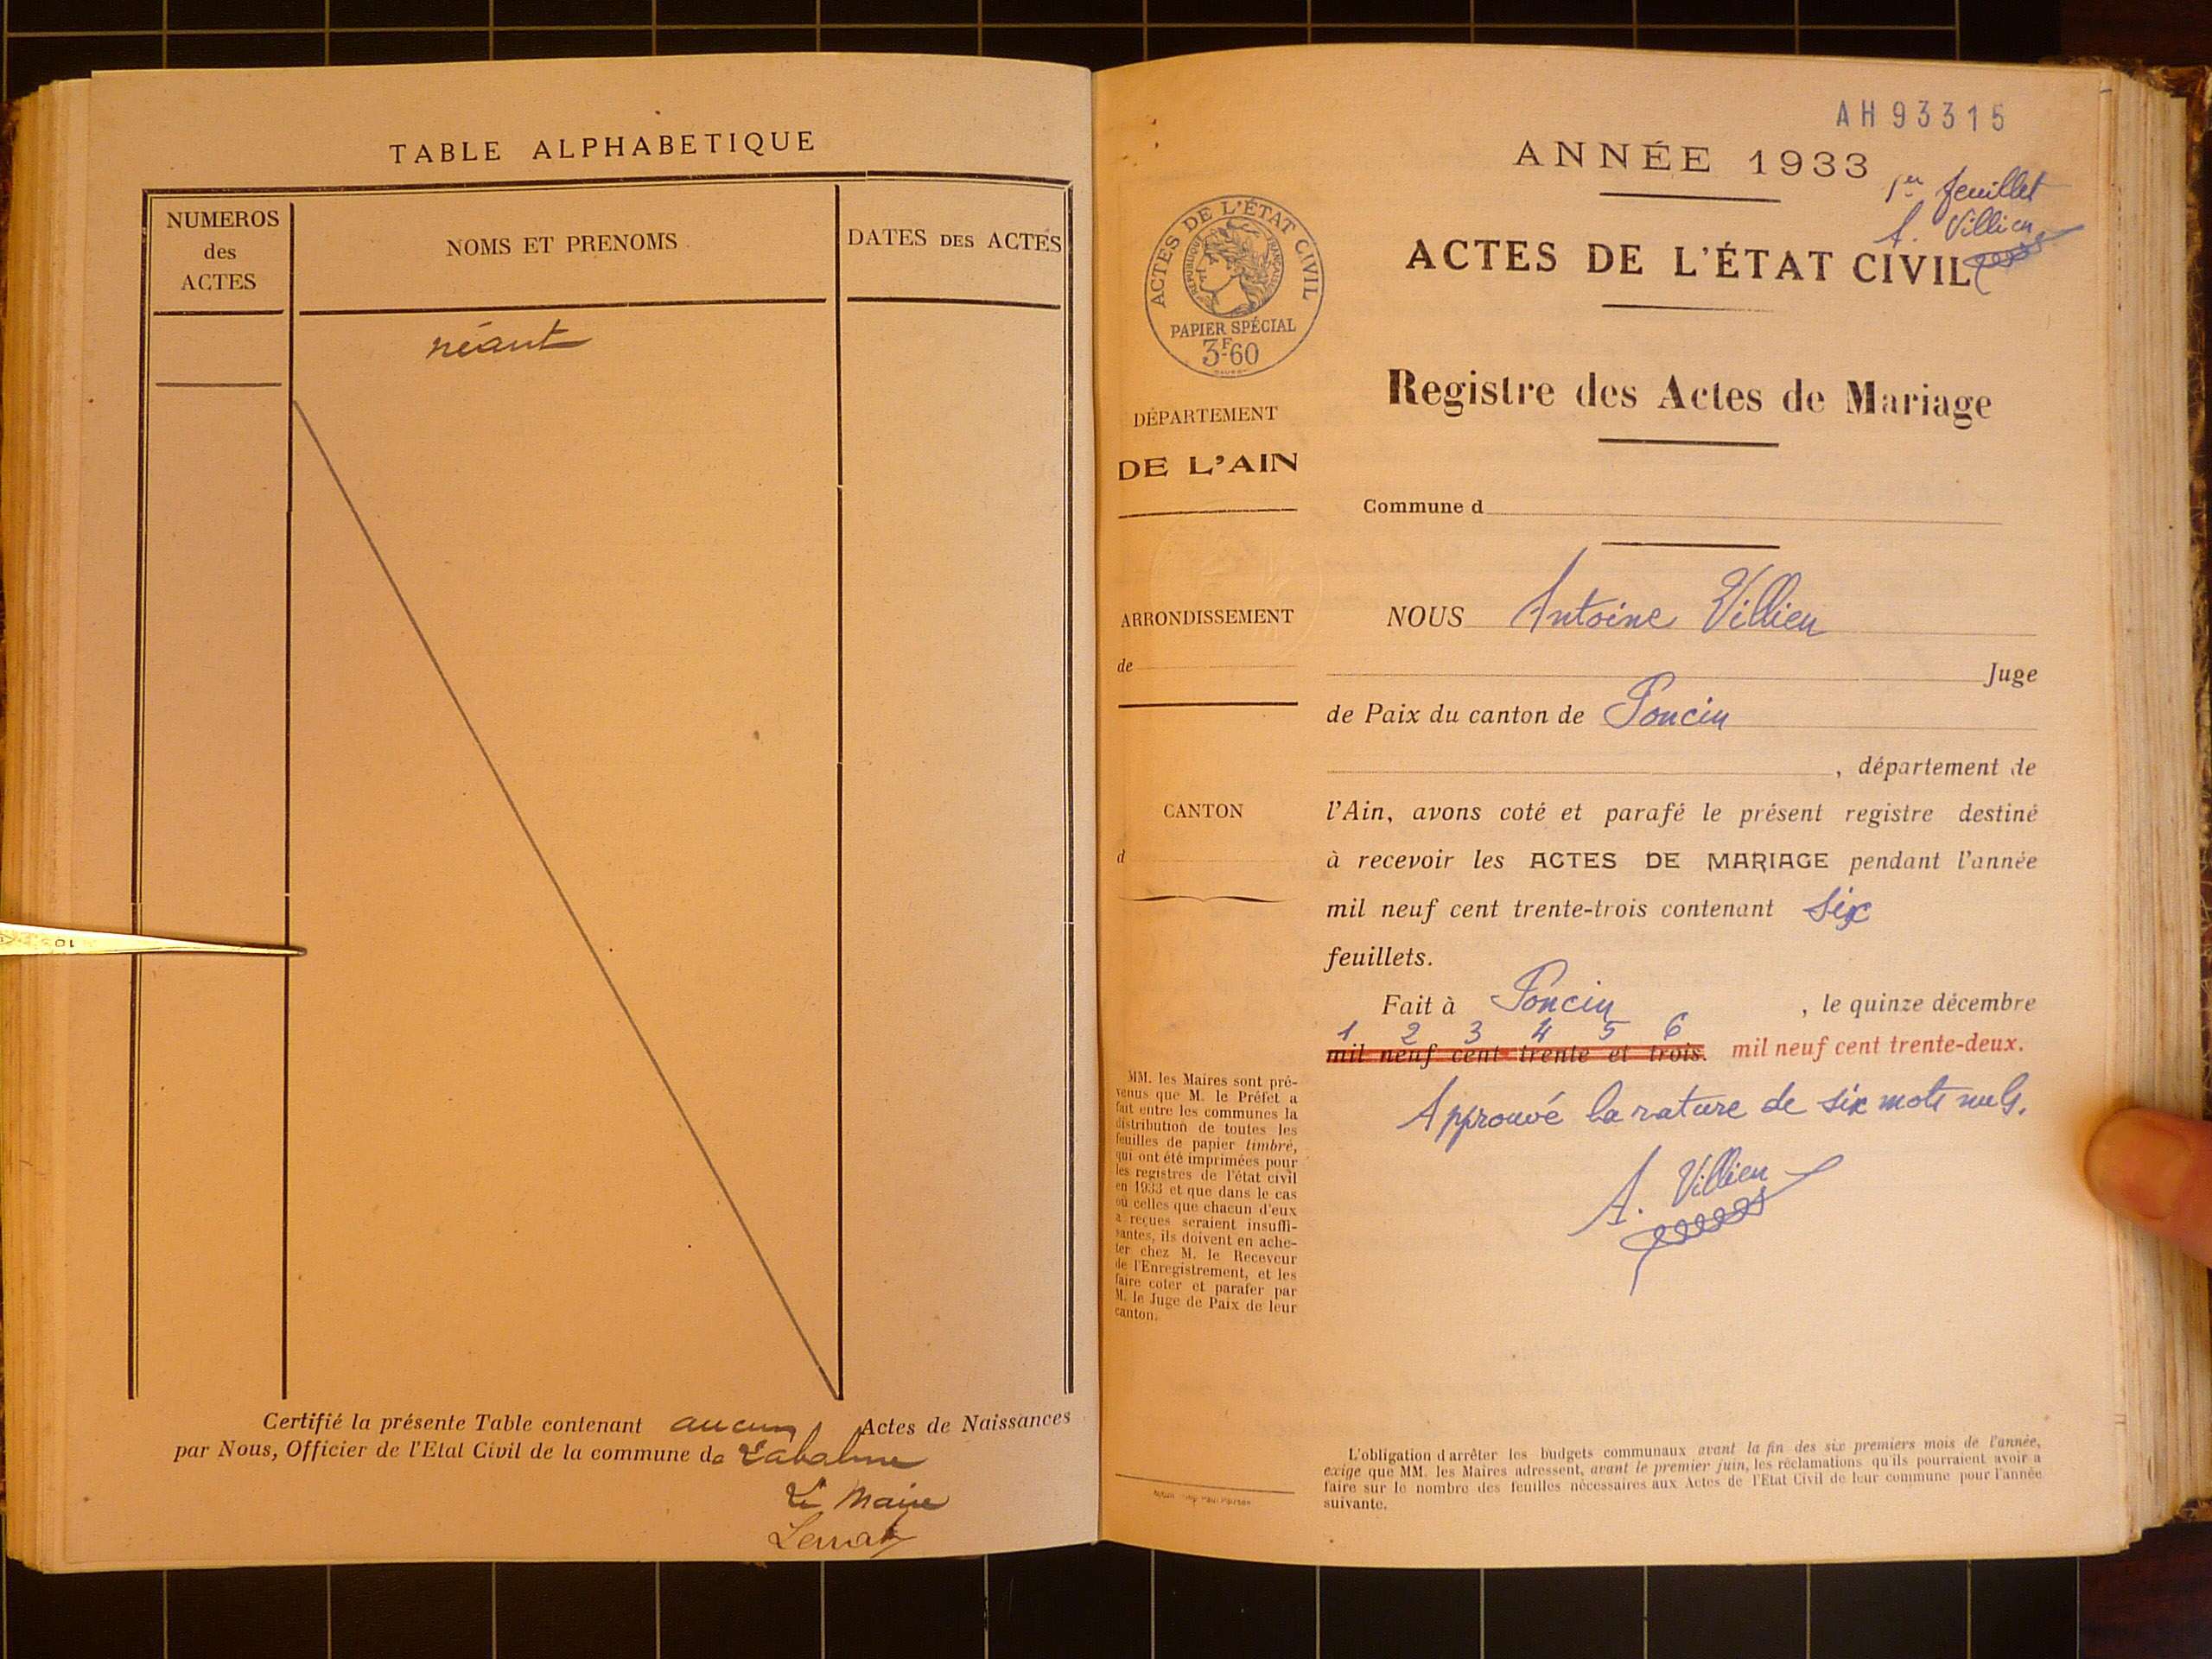 TABLE ALPHABETIQUE
NUMEROS
des
ACTES
NOMS ET PRENOMS
DATES DES ACTES
néant
Certifié la présente Table contenant aucun Actes de Naissances
par Nous, Officier de l'Etat Civil de la commune de Labalme
Le Maire
AH93315
ANNÉE 1933
1er feuillet
A. Villien
ACTES DE L'ÉTAT CIVIL
ACTES DE L'ÉTAT CIVIL
RÉPUBLIQUE FRANÇAISE
PAPIER SPÉCIAL
3F60
Registre des Actes de Mariage
DÉPARTEMENT
DE L'AIN
Commune d
ARRONDISSEMENT
de
NOUS Antoine Villien
Juge
de Paix du canton de Poncin
, département de
CANTON
d
l'Ain, avons coté et parafé le présent registre destiné
à recevoir les ACTES DE MARIAGE pendant l'année
mil neuf cent trente-trois contenant six
feuillets.
Fait à Poncin , le quinze décembre
1 2 3 4 5 6
mil neuf cent trente et trois. mil neuf cent trente-deux.
Approuvé la rature de six mots nuls.
A. Villien
MM. les Maires sont pré-
venus que M. le Préfet a
fait entre les communes la
distribution de toutes les
feuilles de papier timbré,
qui ont été imprimées pour
les registres de l'état civil
en 1933 et que dans le cas
où celles que chacun d'eux
a reçues seraient insuffi-
santes, ils doivent en ache-
ter chez M. le Receveur
de l'Enregistrement, et les
faire coter et parafer par
M. le Juge de Paix de leur
canton.
L'obligation d'arrêter les budgets communaux avant la fin des six premiers mois de l'année,
exige que MM. les Maires adressent, avant le premier juin, les réclamations qu'ils pourraient avoir à
faire sur le nombre des feuilles nécessaires aux Actes de l'Etat Civil de leur commune pour l'année
suivante.